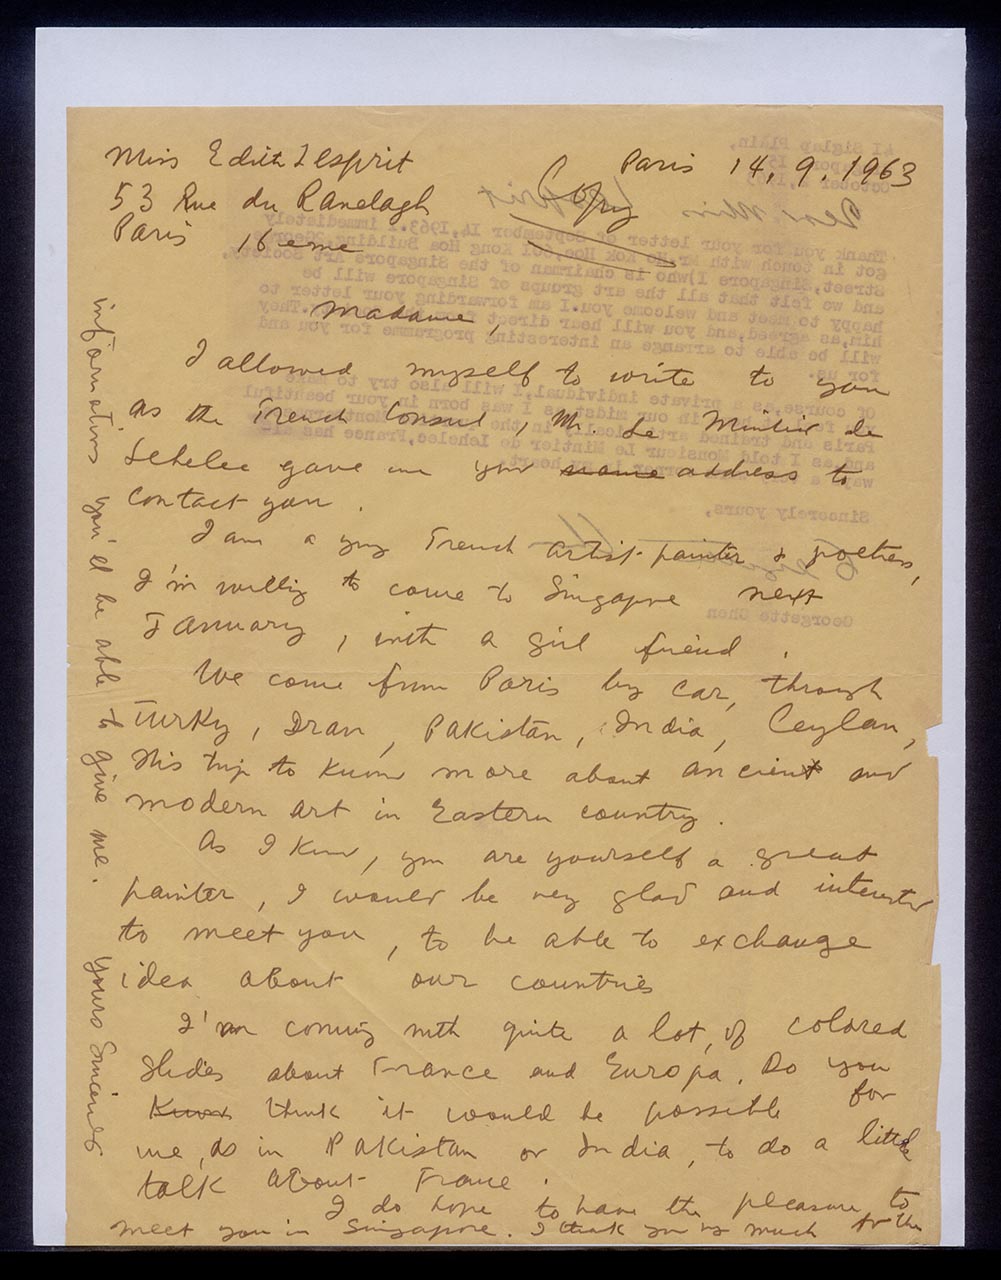 Miss Edith Lesprit
Paris 14, 9, 1963
53 Rue du Ranelagh
Copy
Paris 16 eme
Madame,
I allowed myself to write to you
as the French Consul, Mr. Le Mintier de
Lehelec gave me your name address to
contact you.
I am a yng French artist-painter & poetess,
I'm willig to come to Singapore next
January, with a girl friend.
We come from Paris by car, through
Turky, Iran, Pakistan, India, Ceylan,
this trip to know more about ancient and
modern art in Eastern country.
As I know, you are yourself a great
painter, I would be very glad and interested
to meet you, to be able to exchange
idea about our countries
I'm coming with quite a lot, of colored
slides about France and Europa. Do you
Know think it would be possible for
me, as in Pakistan or India, to do a little
talk about France.
I do hope to have the pleasure to
meet you in Singapore. I thank you vy much for the
informations you'd be able to give me. Yours Sincerely
41 Siglap Plain,
Singapore 15.
October 2, 1963
Dear Miss Lesprit
Thank you for your letter of September 14,1963.I immediately
got in touch with Mr.Ho Kok Hoe,(601 Kong Hoa Building,
Street,Singapore 1)who is chairman of the Singapore Art Society,
and we felt that all the art groups of Singapore will be
happy to meet and welcome you.I am forwarding your letter to
him,as agreed,and you will hear direct .They
will be able to arrange an interesting programme for you and
for us.
Of course,as a private individual,I will also try to make
you with our midst,as I was born in your beautiful
Paris and trained artistically in the
and,as I told Monsieur Le Mintier de Lehelec,France has al-
ways a heart.
Sincerely yours,
Georgette Chen